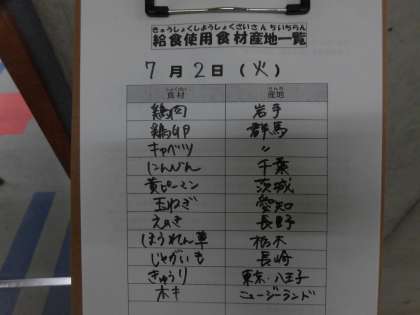 きゅうしょくしようしょくざいさんちいちらん
給食使用食材産地一覧
7月2日(火)
しょくざい さんち
食材 産地
鶏肉 岩手
鶏卵 群馬
キャベツ 〃
にんじん 千葉
黄ピーマン 茨城
玉ねぎ 愛知
えのき 長野
ほうれん草 栃木
じゃがいも 長崎
きゅうり 東京・八王子
ニュージーランド